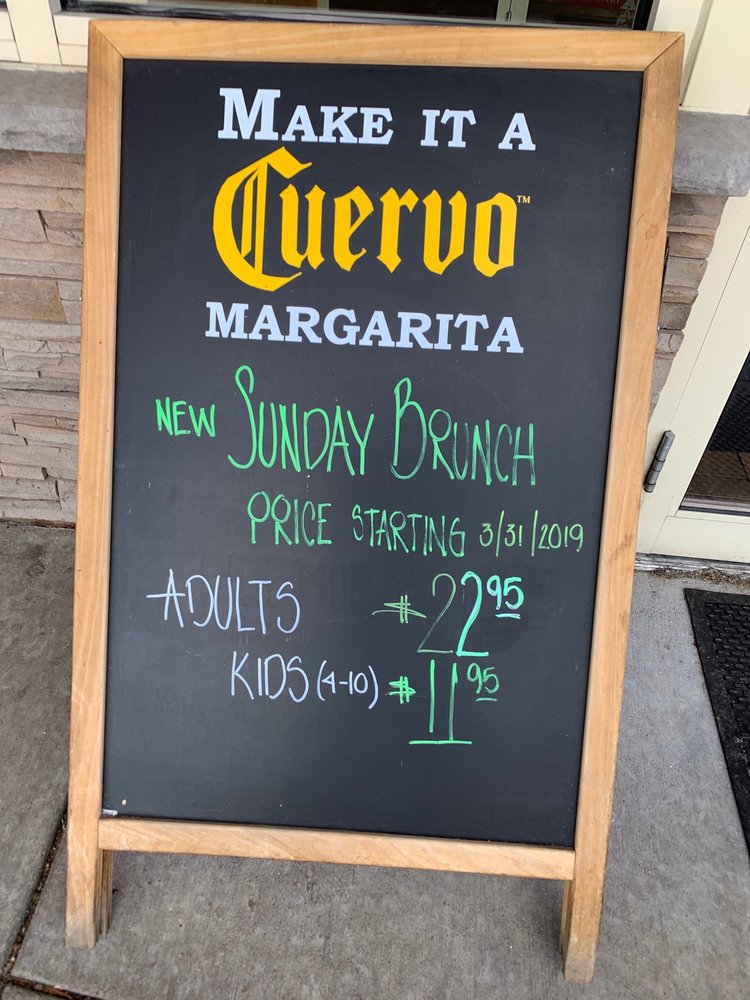 MAKE IT A
Cuervo™
MARGARITA
NEW SUNDAY BRUNCH
PRICE STARTING 3/31/2019
ADULTS $22.95
KIDS (4-10) $11.95